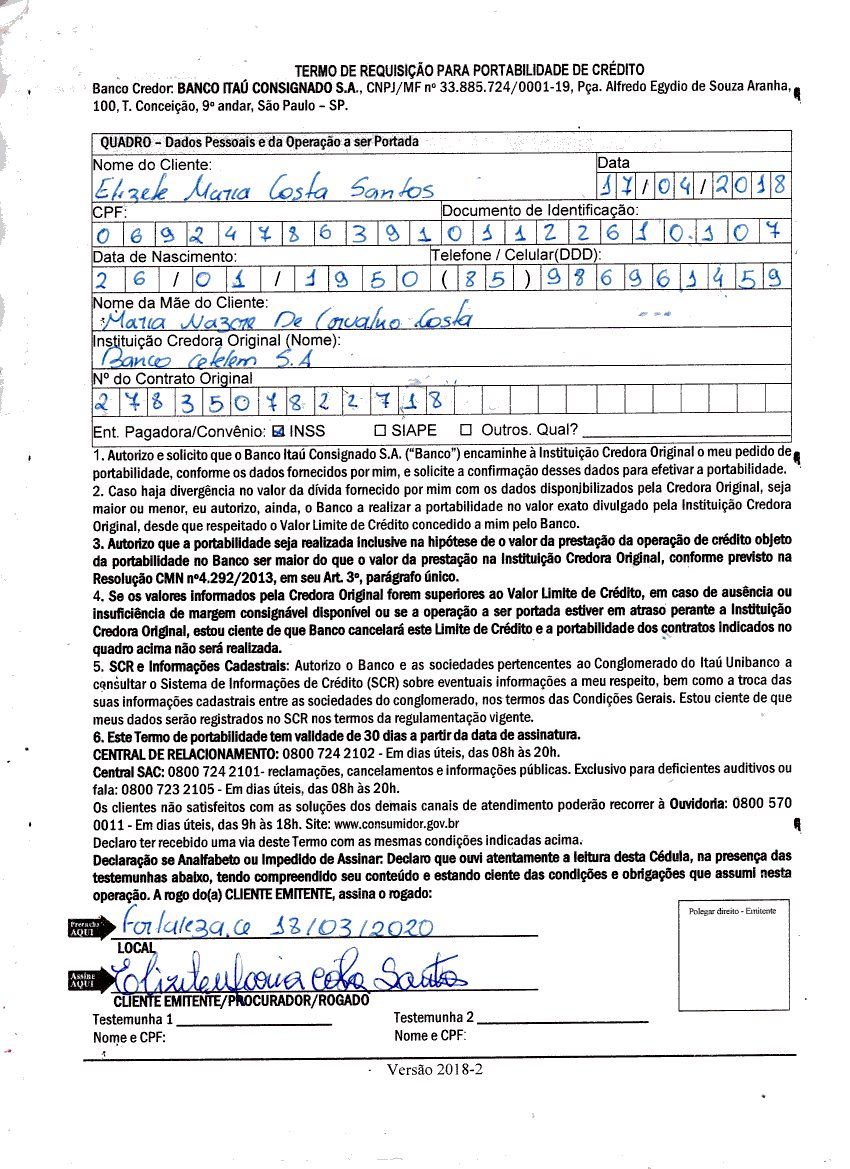 TERMO DE REQUISIÇÃO PARA PORTABILIDADE DE CRÉDITO
Banco Credor: BANCO ITAÚ CONSIGNADO S.A., CNPJ/MF nº 33.885.724/0001-19, Pça. Alfredo Egydio de Souza Aranha,
100, T. Conceição, 9º andar, São Paulo – SP.
QUADRO – Dados Pessoais e da Operação a ser Portada
Nome do Cliente: Data
Elizete Maria Costa Santos 17/04/2018
CPF: Documento de Identificação:
06924786391 01122610.107
Data de Nascimento: Telefone / Celular(DDD):
26/01/1950 (85)986961459
Nome da Mãe do Cliente:
Maria Nazare De Carvalho Costa
Instituição Credora Original (Nome):
Banco Cetelem S.A
Nº do Contrato Original
2783507822718
Ent. Pagadora/Convênio: ☑ INSS ☐ SIAPE ☐ Outros. Qual?
1. Autorizo e solicito que o Banco Itaú Consignado S.A. (“Banco”) encaminhe à Instituição Credora Original o meu pedido de
portabilidade, conforme os dados fornecidos por mim, e solicite a confirmação desses dados para efetivar a portabilidade.
2. Caso haja divergência no valor da dívida fornecido por mim com os dados disponibilizados pela Credora Original, seja
maior ou menor, eu autorizo, ainda, o Banco a realizar a portabilidade no valor exato divulgado pela Instituição Credora
Original, desde que respeitado o Valor Limite de Crédito concedido a mim pelo Banco.
3. Autorizo que a portabilidade seja realizada inclusive na hipótese de o valor da prestação da operação de crédito objeto
da portabilidade no Banco ser maior do que o valor da prestação na Instituição Credora Original, conforme previsto na
Resolução CMN nº4.292/2013, em seu Art. 3º, parágrafo único.
4. Se os valores informados pela Credora Original forem superiores ao Valor Limite de Crédito, em caso de ausência ou
insuficiência de margem consignável disponível ou se a operação a ser portada estiver em atraso perante a Instituição
Credora Original, estou ciente de que Banco cancelará este Limite de Crédito e a portabilidade dos contratos indicados no
quadro acima não será realizada.
5. SCR e Informações Cadastrais: Autorizo o Banco e as sociedades pertencentes ao Conglomerado do Itaú Unibanco a
consultar o Sistema de Informações de Crédito (SCR) sobre eventuais informações a meu respeito, bem como a troca das
suas informações cadastrais entre as sociedades do conglomerado, nos termos das Condições Gerais. Estou ciente de que
meus dados serão registrados no SCR nos termos da regulamentação vigente.
6. Este Termo de portabilidade tem validade de 30 dias a partir da data de assinatura.
CENTRAL DE RELACIONAMENTO: 0800 724 2102 - Em dias úteis, das 08h às 20h.
Central SAC: 0800 724 2101- reclamações, cancelamentos e informações públicas. Exclusivo para deficientes auditivos ou
fala: 0800 723 2105 - Em dias úteis, das 08h às 20h.
Os clientes não satisfeitos com as soluções dos demais canais de atendimento poderão recorrer à Ouvidoria: 0800 570
0011 - Em dias úteis, das 9h às 18h. Site: www.consumidor.gov.br
Declaro ter recebido uma via deste Termo com as mesmas condições indicadas acima.
Declaração se Analfabeto ou Impedido de Assinar: Declaro que ouvi atentamente a leitura desta Cédula, na presença das
testemunhas abaixo, tendo compreendido seu conteúdo e estando ciente das condições e obrigações que assumi nesta
operação. A rogo do(a) CLIENTE EMITENTE, assina o rogado:
Polegar direito - Emitente
Preencha AQUI Fortaleza, ce 18/03/2020
LOCAL
Assine AQUI Elizete Maria Costa Santos
CLIENTE EMITENTE/PROCURADOR/ROGADO
Testemunha 1 Testemunha 2
Nome e CPF: Nome e CPF:
Versão 2018-2